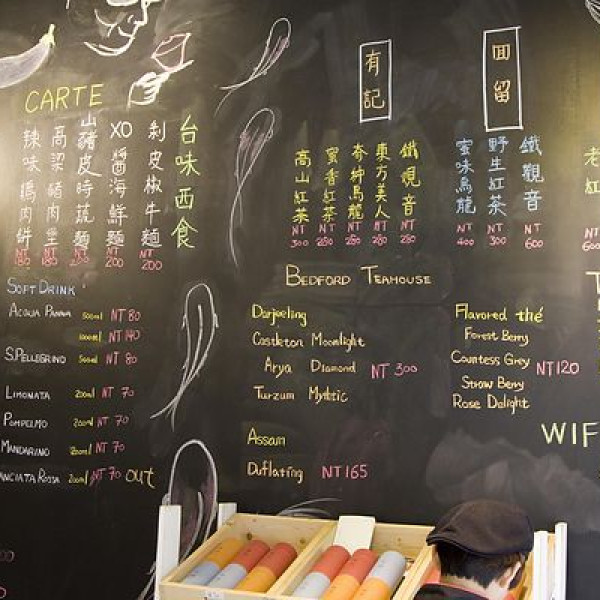 CARTE
台味西食
剝皮椒牛麵 NT 200
XO醬海鮮麵 NT 200
山豬皮時蔬麵 NT 180
高粱豬肉堡 NT 180
辣味鴨肉餅
SOFT DRINK
ACQUA PANNA 500ml NT 80
1000ml NT 140
S.PELLEGRINO 500ml NT 80
LIMONATA 200ml NT 70
POMPELMO 200ml NT 70
MANDARINO 200ml NT 70
ANCIATA ROSSA 200ml NT 70 out
有記
鐵觀音 NT 280
東方美人 NT 280
奇種烏龍 NT 280
蜜香紅茶 NT 280
高山紅茶 NT 300
回留
鐵觀音 NT 600
野生紅茶 NT 300
蜜味烏龍 NT 400
老
紅
NT 600
BEDFORD TEAHOUSE
Darjeeling
Castleton Moonlight
Arya Diamond NT 300
Turzum Mythtic
Assam
Duflating NT 165
Flavored thé
Forest Berry
Countess Grey NT 120
Straw Berry
Rose Delight
WIF